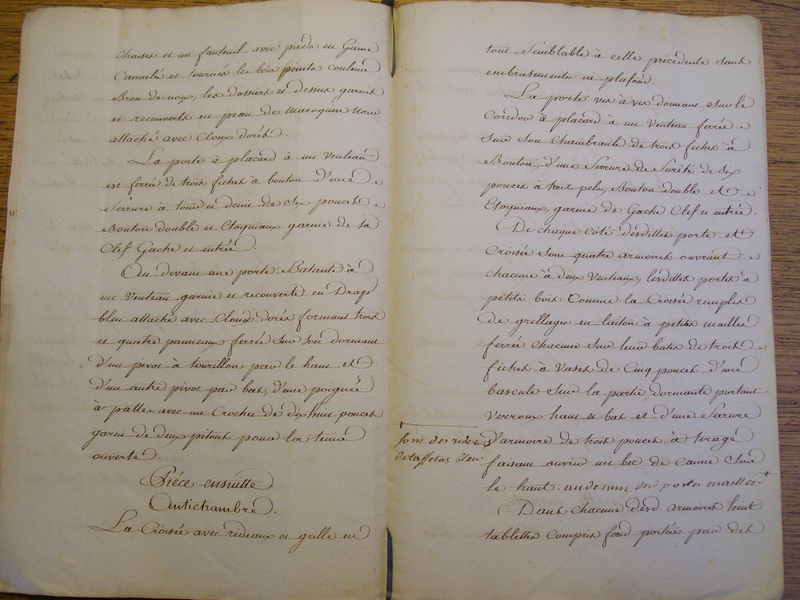 chaises et un fauteuil avec pieds en Gaine
Cannelés et tournés le bois peinte couleur
Brou de noix, les dossiers et dessus garnis
et recouverts en peau de Maroquin Noir
attaché avec Cloux dorés
La porte à placard à un Venteau
est ferrée de trois fiches à bouton d'une
Serrure à tour et demie de Six pouces
Bouton double et Etoquiaux garnie de sa
Clef Gache et entrée.
Au devant une porte Batante à
un Venteau garnie et recouverte en Drap
bleu attaché avec Cloux dorés formant trois
et quatre panneaux ferrée sur son dormant
d'un pivot à tourillon par le haut et
d'un autre pivot par bas, d'une poignée
à patte avec un Crochet de dix huit pouces
garnie de deux pitons pour la tenir
ouverte.
Piéce ensuitte
Antichambre.
La Croisée avec rideaux et grille en
tout Semblable à celle précédente sauf
embrasements et plafond.
La porte vis à vis donnant sur le
Coridor à placard à un Venteau ferrée
sur son Chambranle de trois fiches à
Bouton, d'une Serrure de Sureté de Six
pouces à trois pelles Bouton double et
Etoquiaux, garnie de Gache Clef et entrée.
De chaque Côté desdittes porte et
Croisée sont quatre armoires ouvrant
chacune à deux Venteaux, lesdittes portes à
petits bois Comme la Croisée remplis
de grillage en laiton à petites mailles
ferrée chacune sur leur batis de trois
fiches à Vases de Cinq pouces d'une
bascule sur la partie dormante portant
verroux haut et bas et d'une Serrure
d'armoire de trois pouces à tirage
faisant ouvrir un bec de Canne sur
le haut. au devant des portes maillées
sont des rideaux
de taffetas bleu
Dans chacune desd armoires huit
tablettes compris fond portés par des